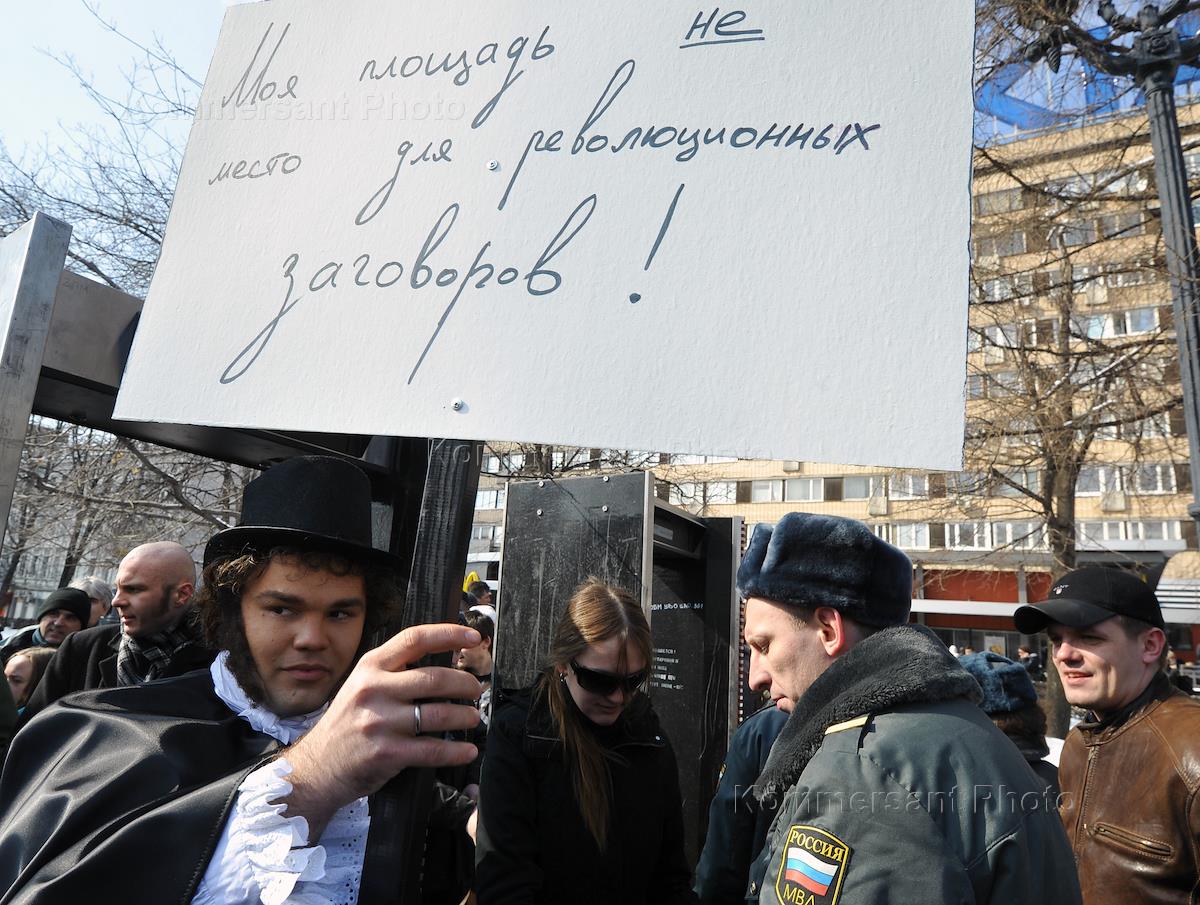 Моя площадь не
место для революционных
заговоров!
Kommersant Photo
Kommersant Photo
РОССИЯ
МВД